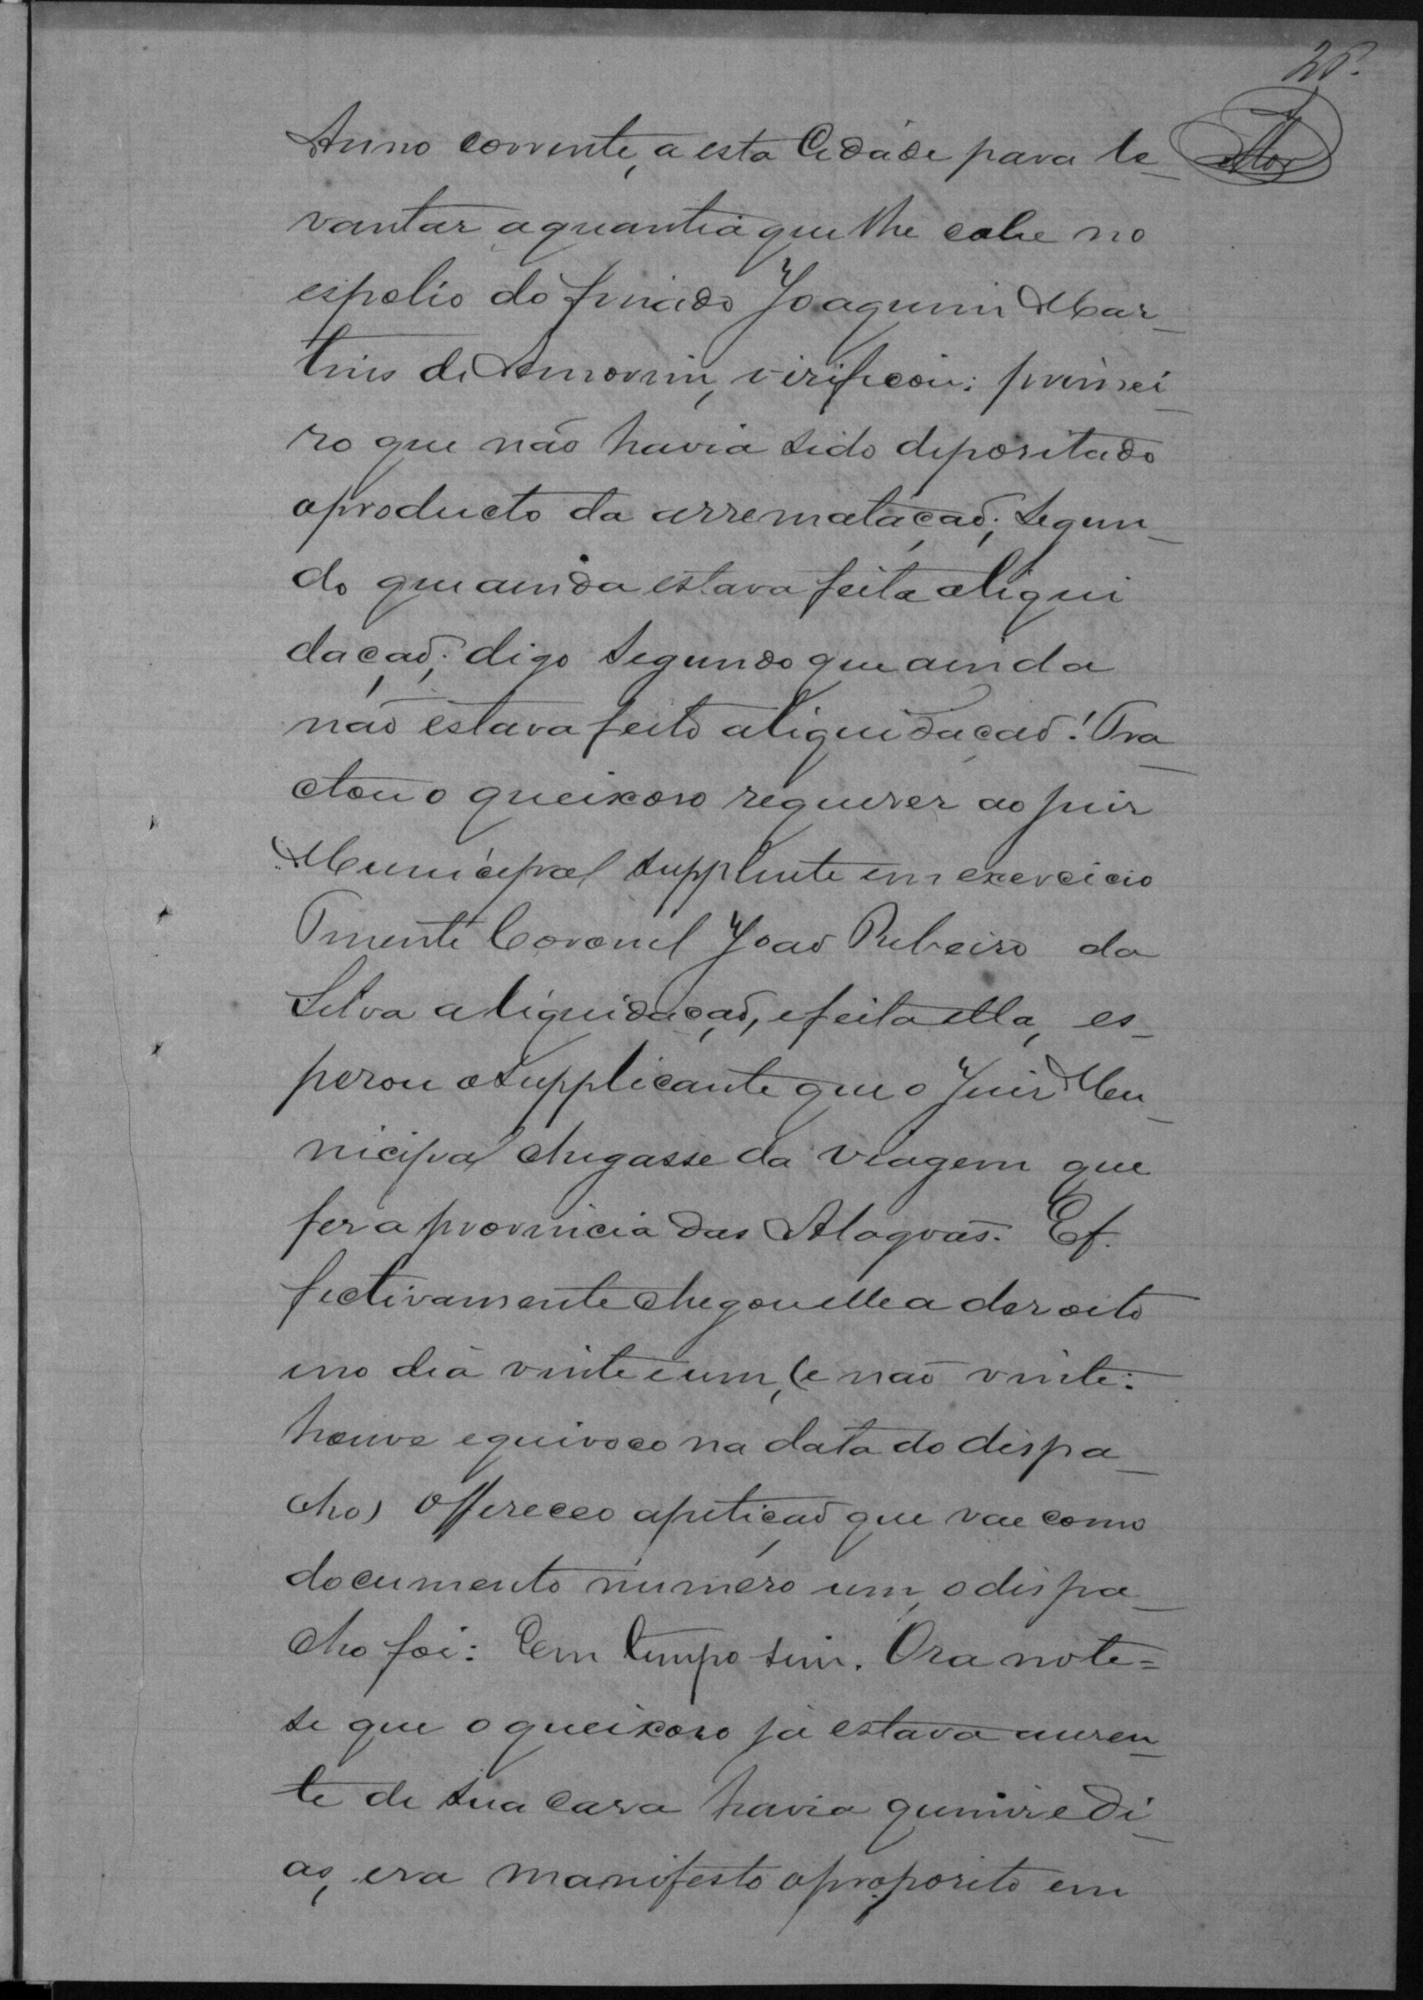 25.
Anno corrente, a esta Cidade para le_
vantar a quantia que lhe cabe no
espolio do finado Joaquim Mar_
tins de Amorim, virificou: primei_
ro que não havia sido depositado
o producto da arremataçaõ; segun_
do que ainda estava feita a liqui
daçaõ; digo segundo que ainda
não estava feito a liquidaçaõ! Tra_
ctou o queixoso requerer ao juiz
Municipal supplente em exercicio
Tenente Coronel João Ribeiro da
Silva a liquidaçaõ, e feita ella, es_
perou o supplicante que o Juiz Mu_
nicipal chegasse da viagem que
fez a provincia das Alagoas. Ef.
fectivamente chegou elle a dezoito
e no dia vinte e um, (e não vinte:
houve equivoco na data do despa_
cho) offereceo a petiçaõ que vae como
documento número um, o despa_
cho foi: Em tempo sim. Ora note=
se que o queixoso já estava auzen_
te de sua caza havia quinze di_
as, era manifesto o proposito em